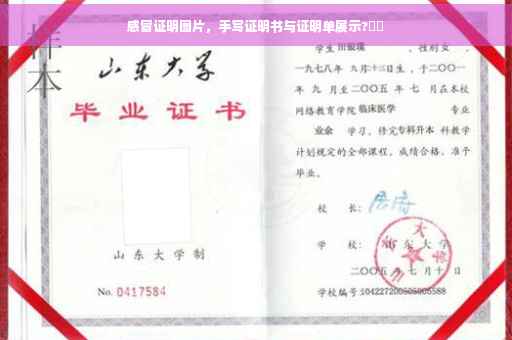 感冒证明图片，手写证明书与证明单展示?
样本
山东大学
毕业证书
山东大学制
No. 0417584
学生 田振瑛 ，性别女 ，
一九七八年 九月十三日生，于二〇〇一
年 九 月至二〇〇五 年 七 月在本校
网络教育学院 临床医学 专业
业余 学习，修完专科升本 科教学
计划规定的全部课程，成绩合格，准予
毕业。
校 长：
学 校： 山东大学
二〇〇五年七月十日
学校编号：